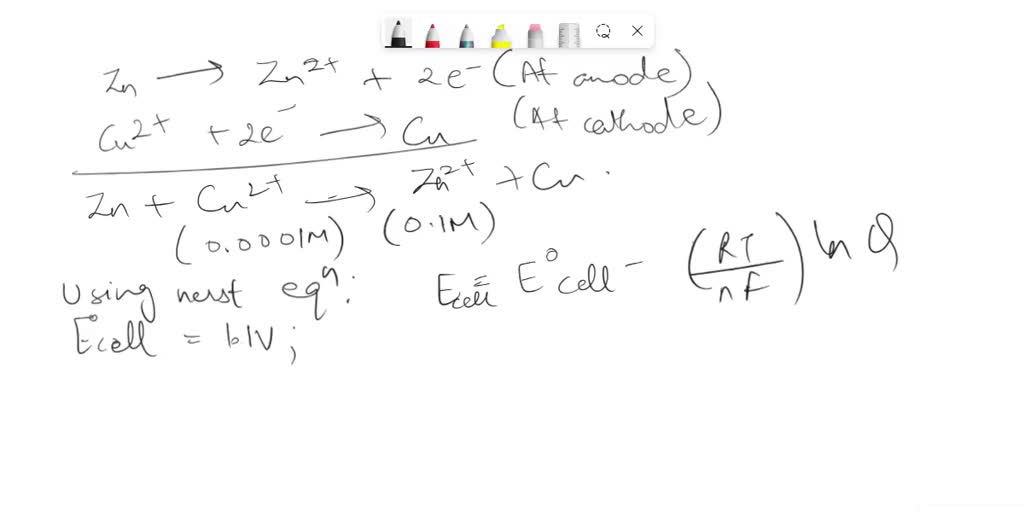 Zn → Zn²⁺ + 2e⁻ (At anode)
Cu²⁺ + 2e⁻ → Cu (At cathode)
Zn + Cu²⁺ → Zn²⁺ + Cu.
(0.0001M) (0.1M)
Using nerst eqⁿ: Ecell = E°cell - (RT/nF) ln Q
E°cell = 1V;